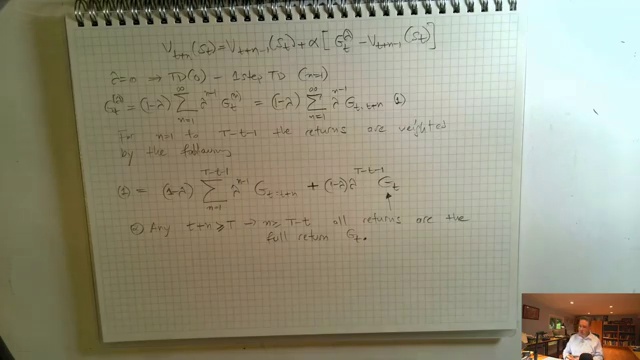 V_{t+n}(S_t) = V_{t+n-1}(S_t) + α[G_t^{(λ)} - V_{t+n-1}(S_t)]
λ=0 → TD(0) - 1 step TD (n=1)
G_t^{(λ)} = (1-λ) Σ_{n=1}^{∞} λ^{n-1} G_t^{(n)} = (1-λ) Σ_{n=1}^{∞} λ^{n-1} G_{t,t+n} (1)
For n=1 to T-t-1 the returns are weighted
by the following
(1) = (1-λ) Σ_{n=1}^{T-t-1} λ^{n-1} G_{t,t+n} + (1-λ) λ^{T-t-1} G_t
Any t+n ≥ T → n ≥ T-t all returns are the
full return G_t.